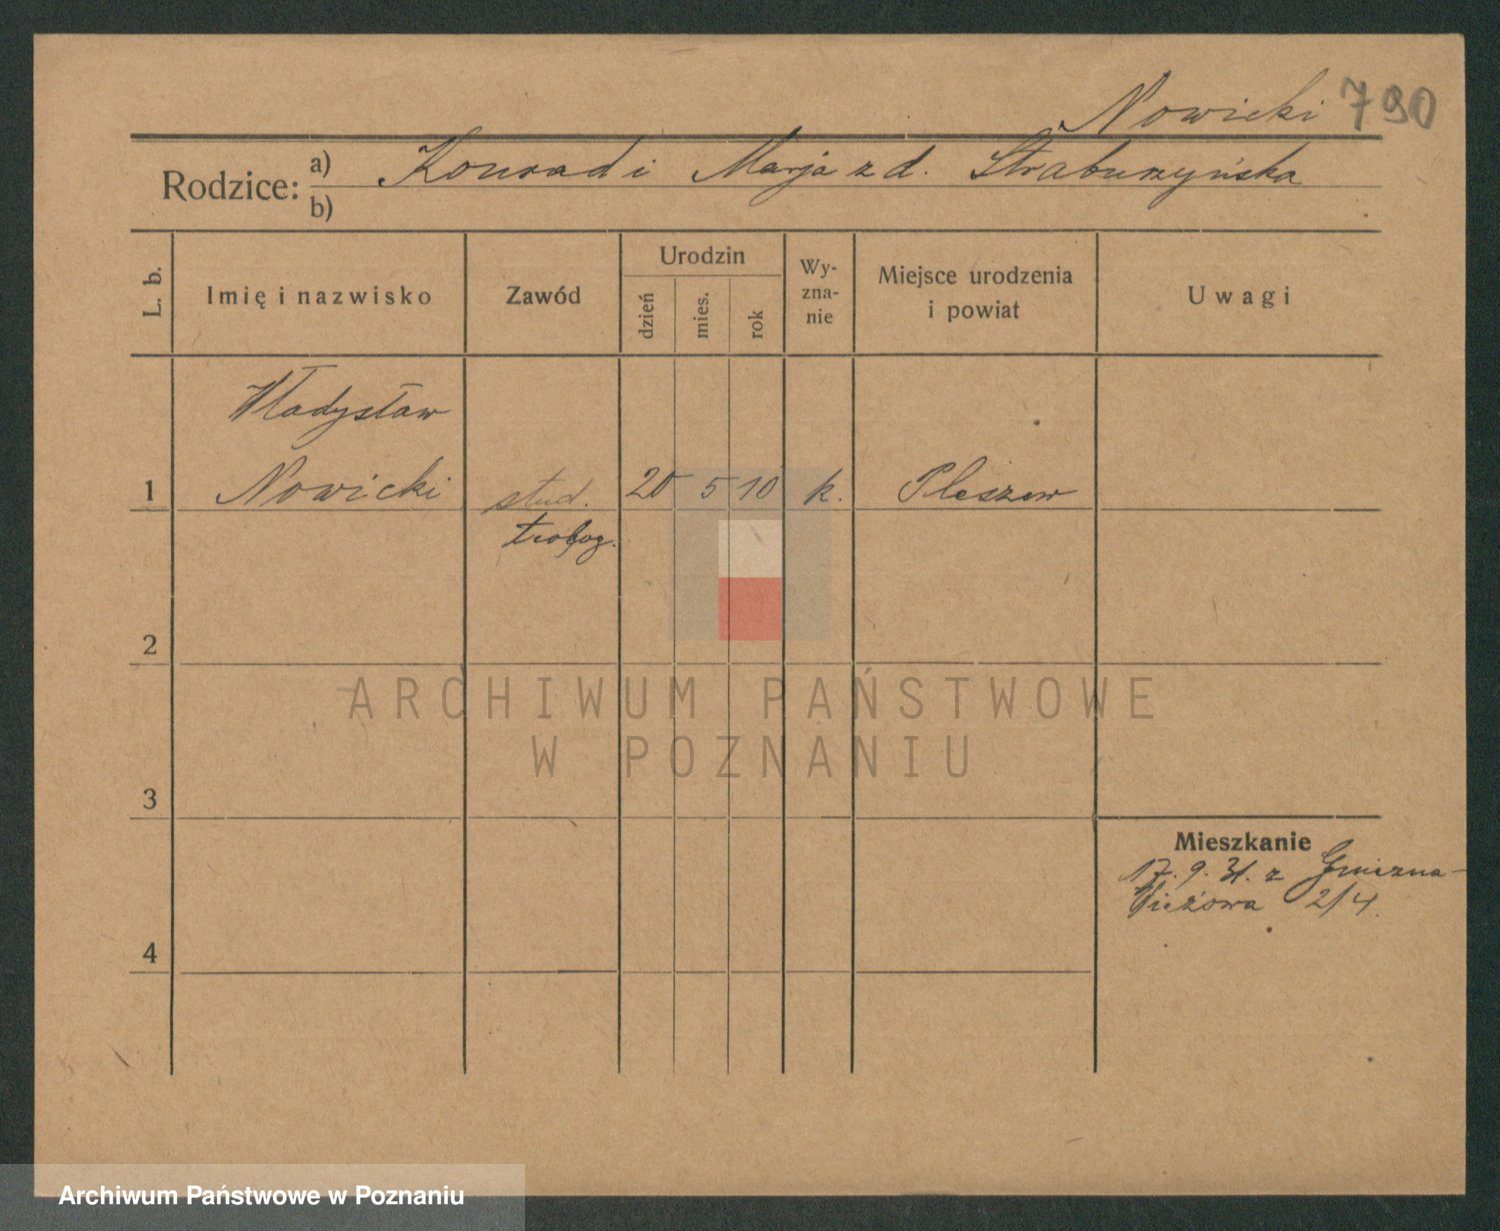 Nowicki 790
Rodzice: a) Konrad i Marja z d. Straburzyńska
b)
L. b. Imię i nazwisko Zawód Urodzin dzień mies. rok Wy-zna-nie Miejsce urodzenia i powiat Uwagi
Władysław
1 Nowicki stud. 20 5 10 k. Pleszew
teolog.
2
ARCHIWUM PAŃSTWOWE
W POZNANIU
3
Mieszkanie
17. 9. 31. z Gniezna -
Wieżowa 2/4.
4
Archiwum Państwowe w Poznaniu